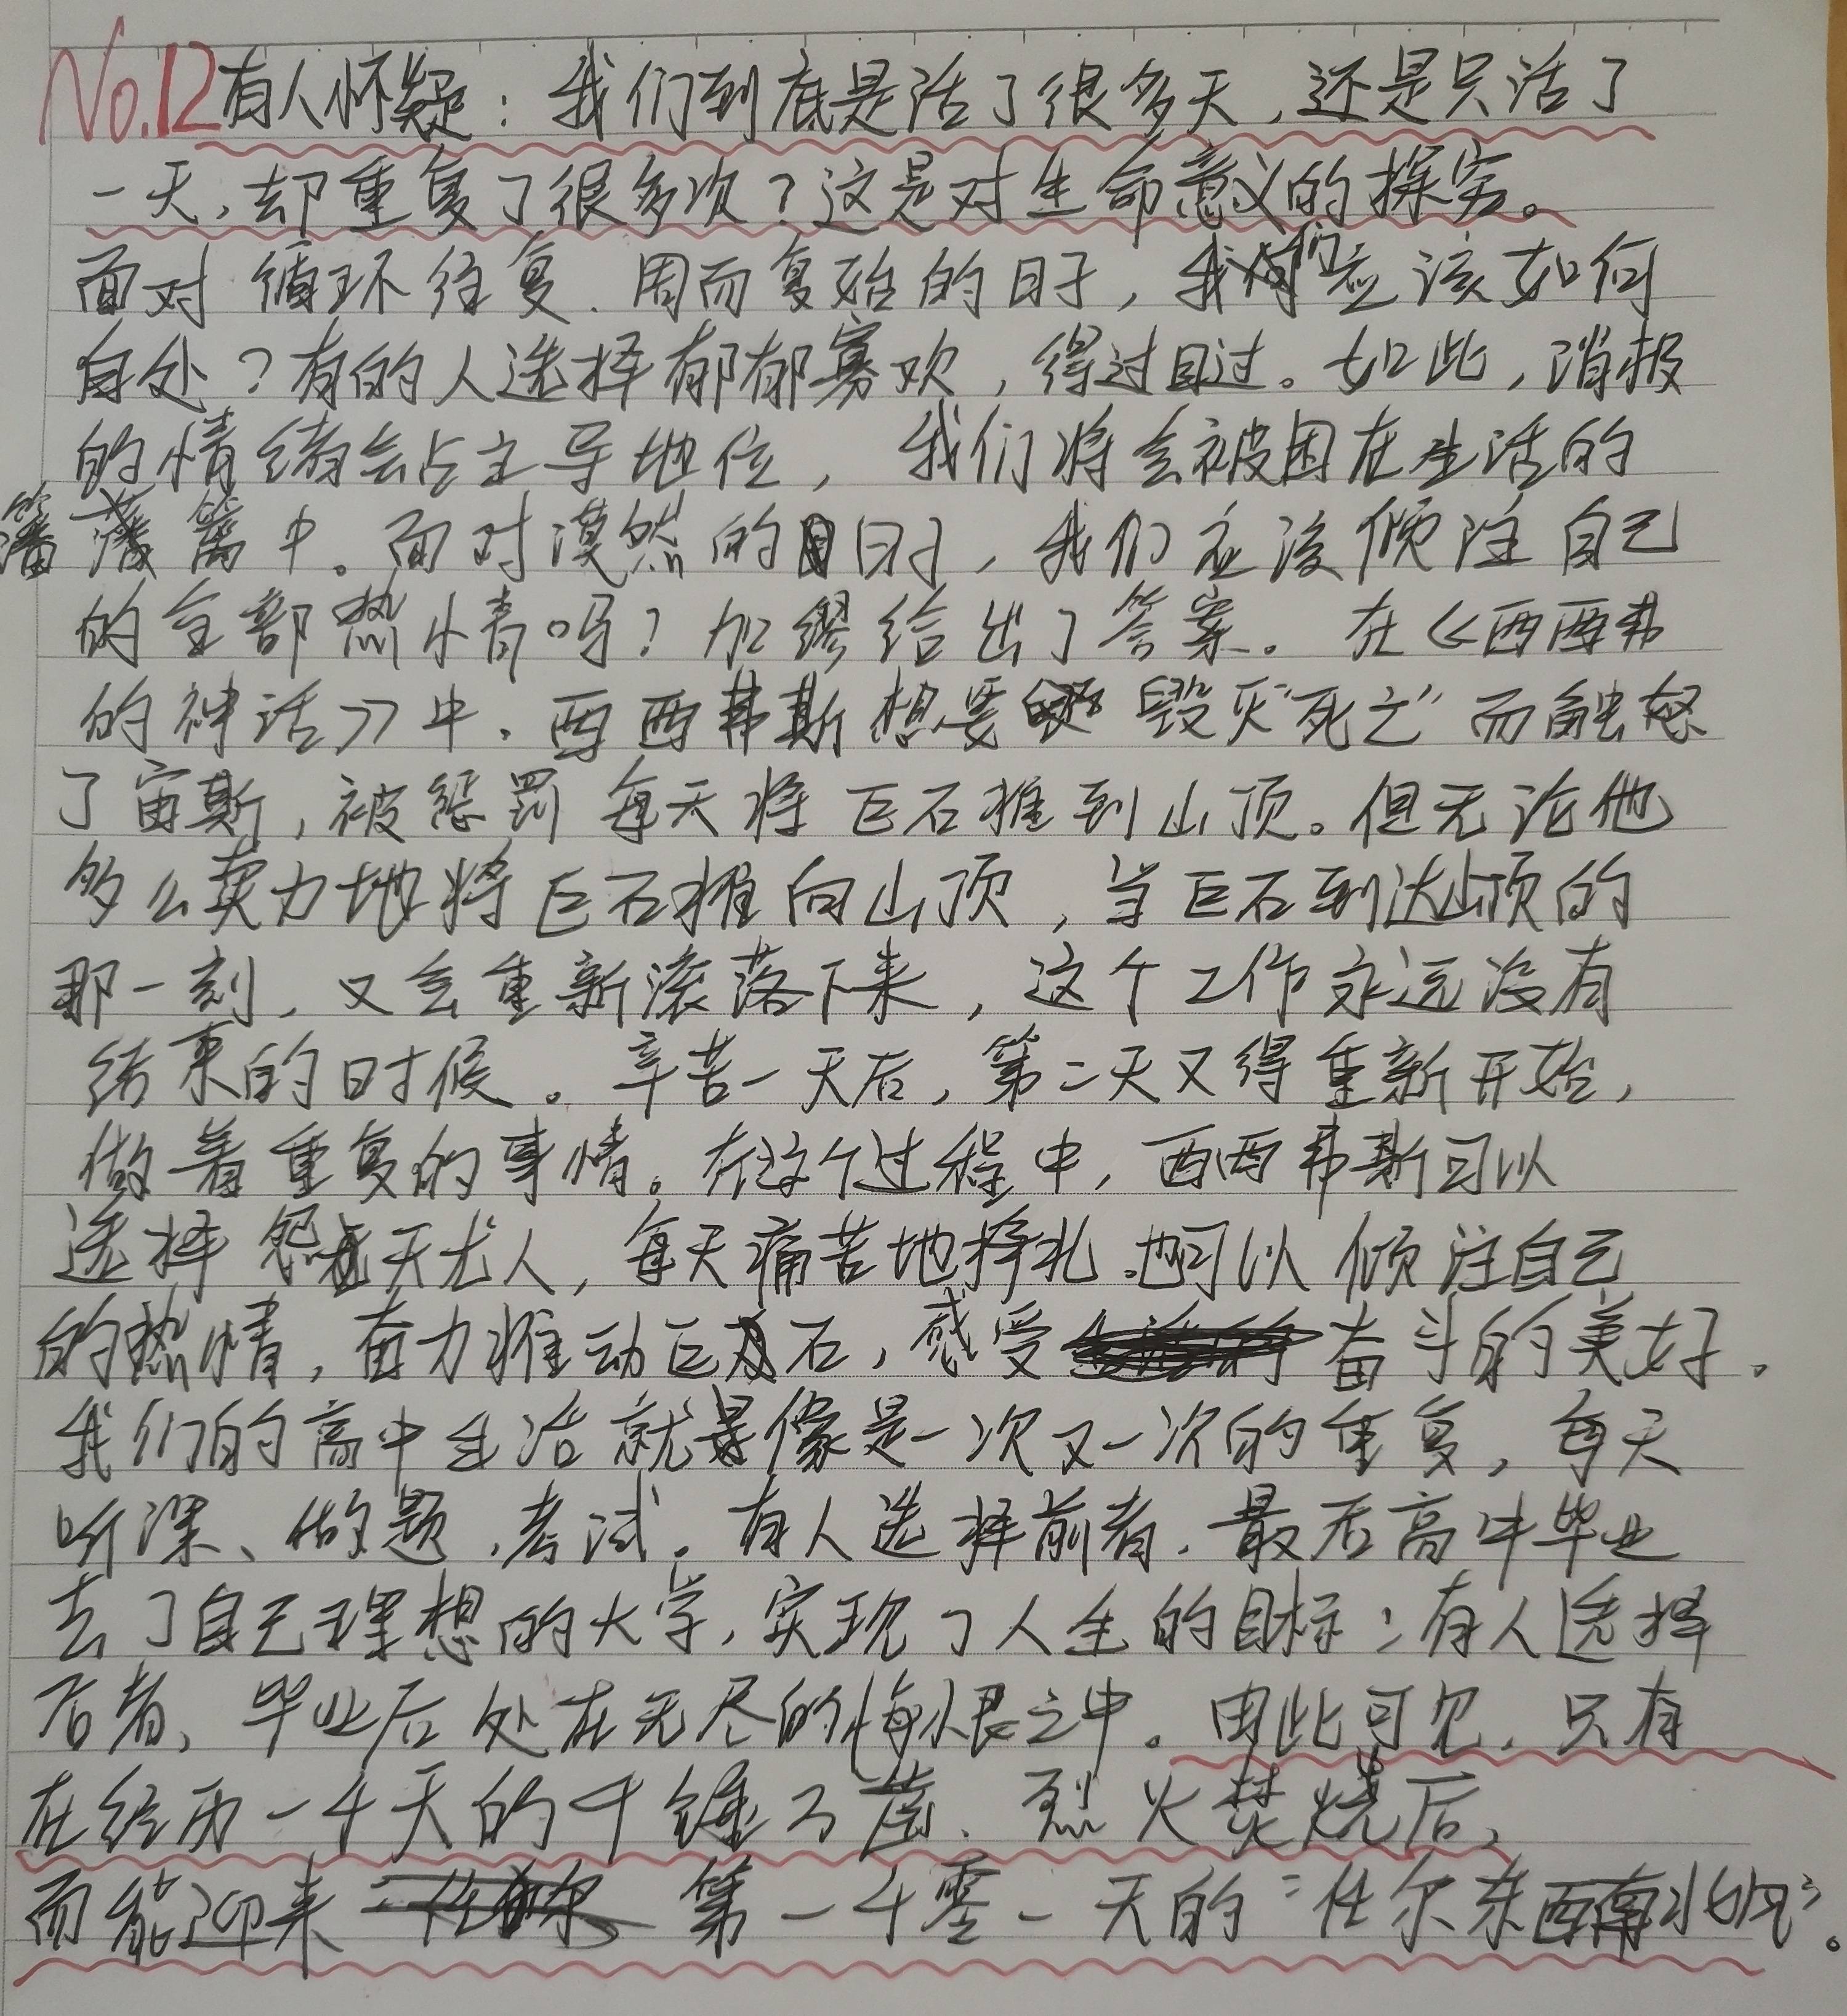 No.12有人怀疑：我们到底是活了很多天，还是只活了
一天，却重复了很多次？这是对生命意义的探究。
面对循环往复、周而复始的日子，我们应该如何
自处？有的人选择郁郁寡欢，得过且过。如此，消极
的情绪会占主导地位，我们将会被困在生活的
藩篱中。面对漠然的日子，我们应该倾注自己
的全部热情吗？加缪给出了答案。在《西西弗
的神话》中，西西弗斯想要毁灭“死亡”而触怒
了宙斯，被惩罚每天将巨石推到山顶。但无论他
多么卖力地将巨石推向山顶，当巨石到达山顶的
那一刻，又会重新滚落下来，这个工作永远没有
结束的时候。辛苦一天后，第二天又得重新开始，
做着重复的事情。在这个过程中，西西弗斯可以
选择怨天尤人，每天痛苦地挣扎，也可以倾注自己
的热情，奋力推动巨石，感受奋斗的美好。
我们的高中生活就像是一次又一次的重复，每天
听课、做题、考试。有人选择前者，最后高中毕业
去了自己理想的大学，实现了人生的目标；有人选择
后者，毕业后处在无尽的悔恨之中。由此可见，只有
在经历一千天的千锤万凿、烈火焚烧后，
而能迎来第一千零一天的“任尔东西南北风”。